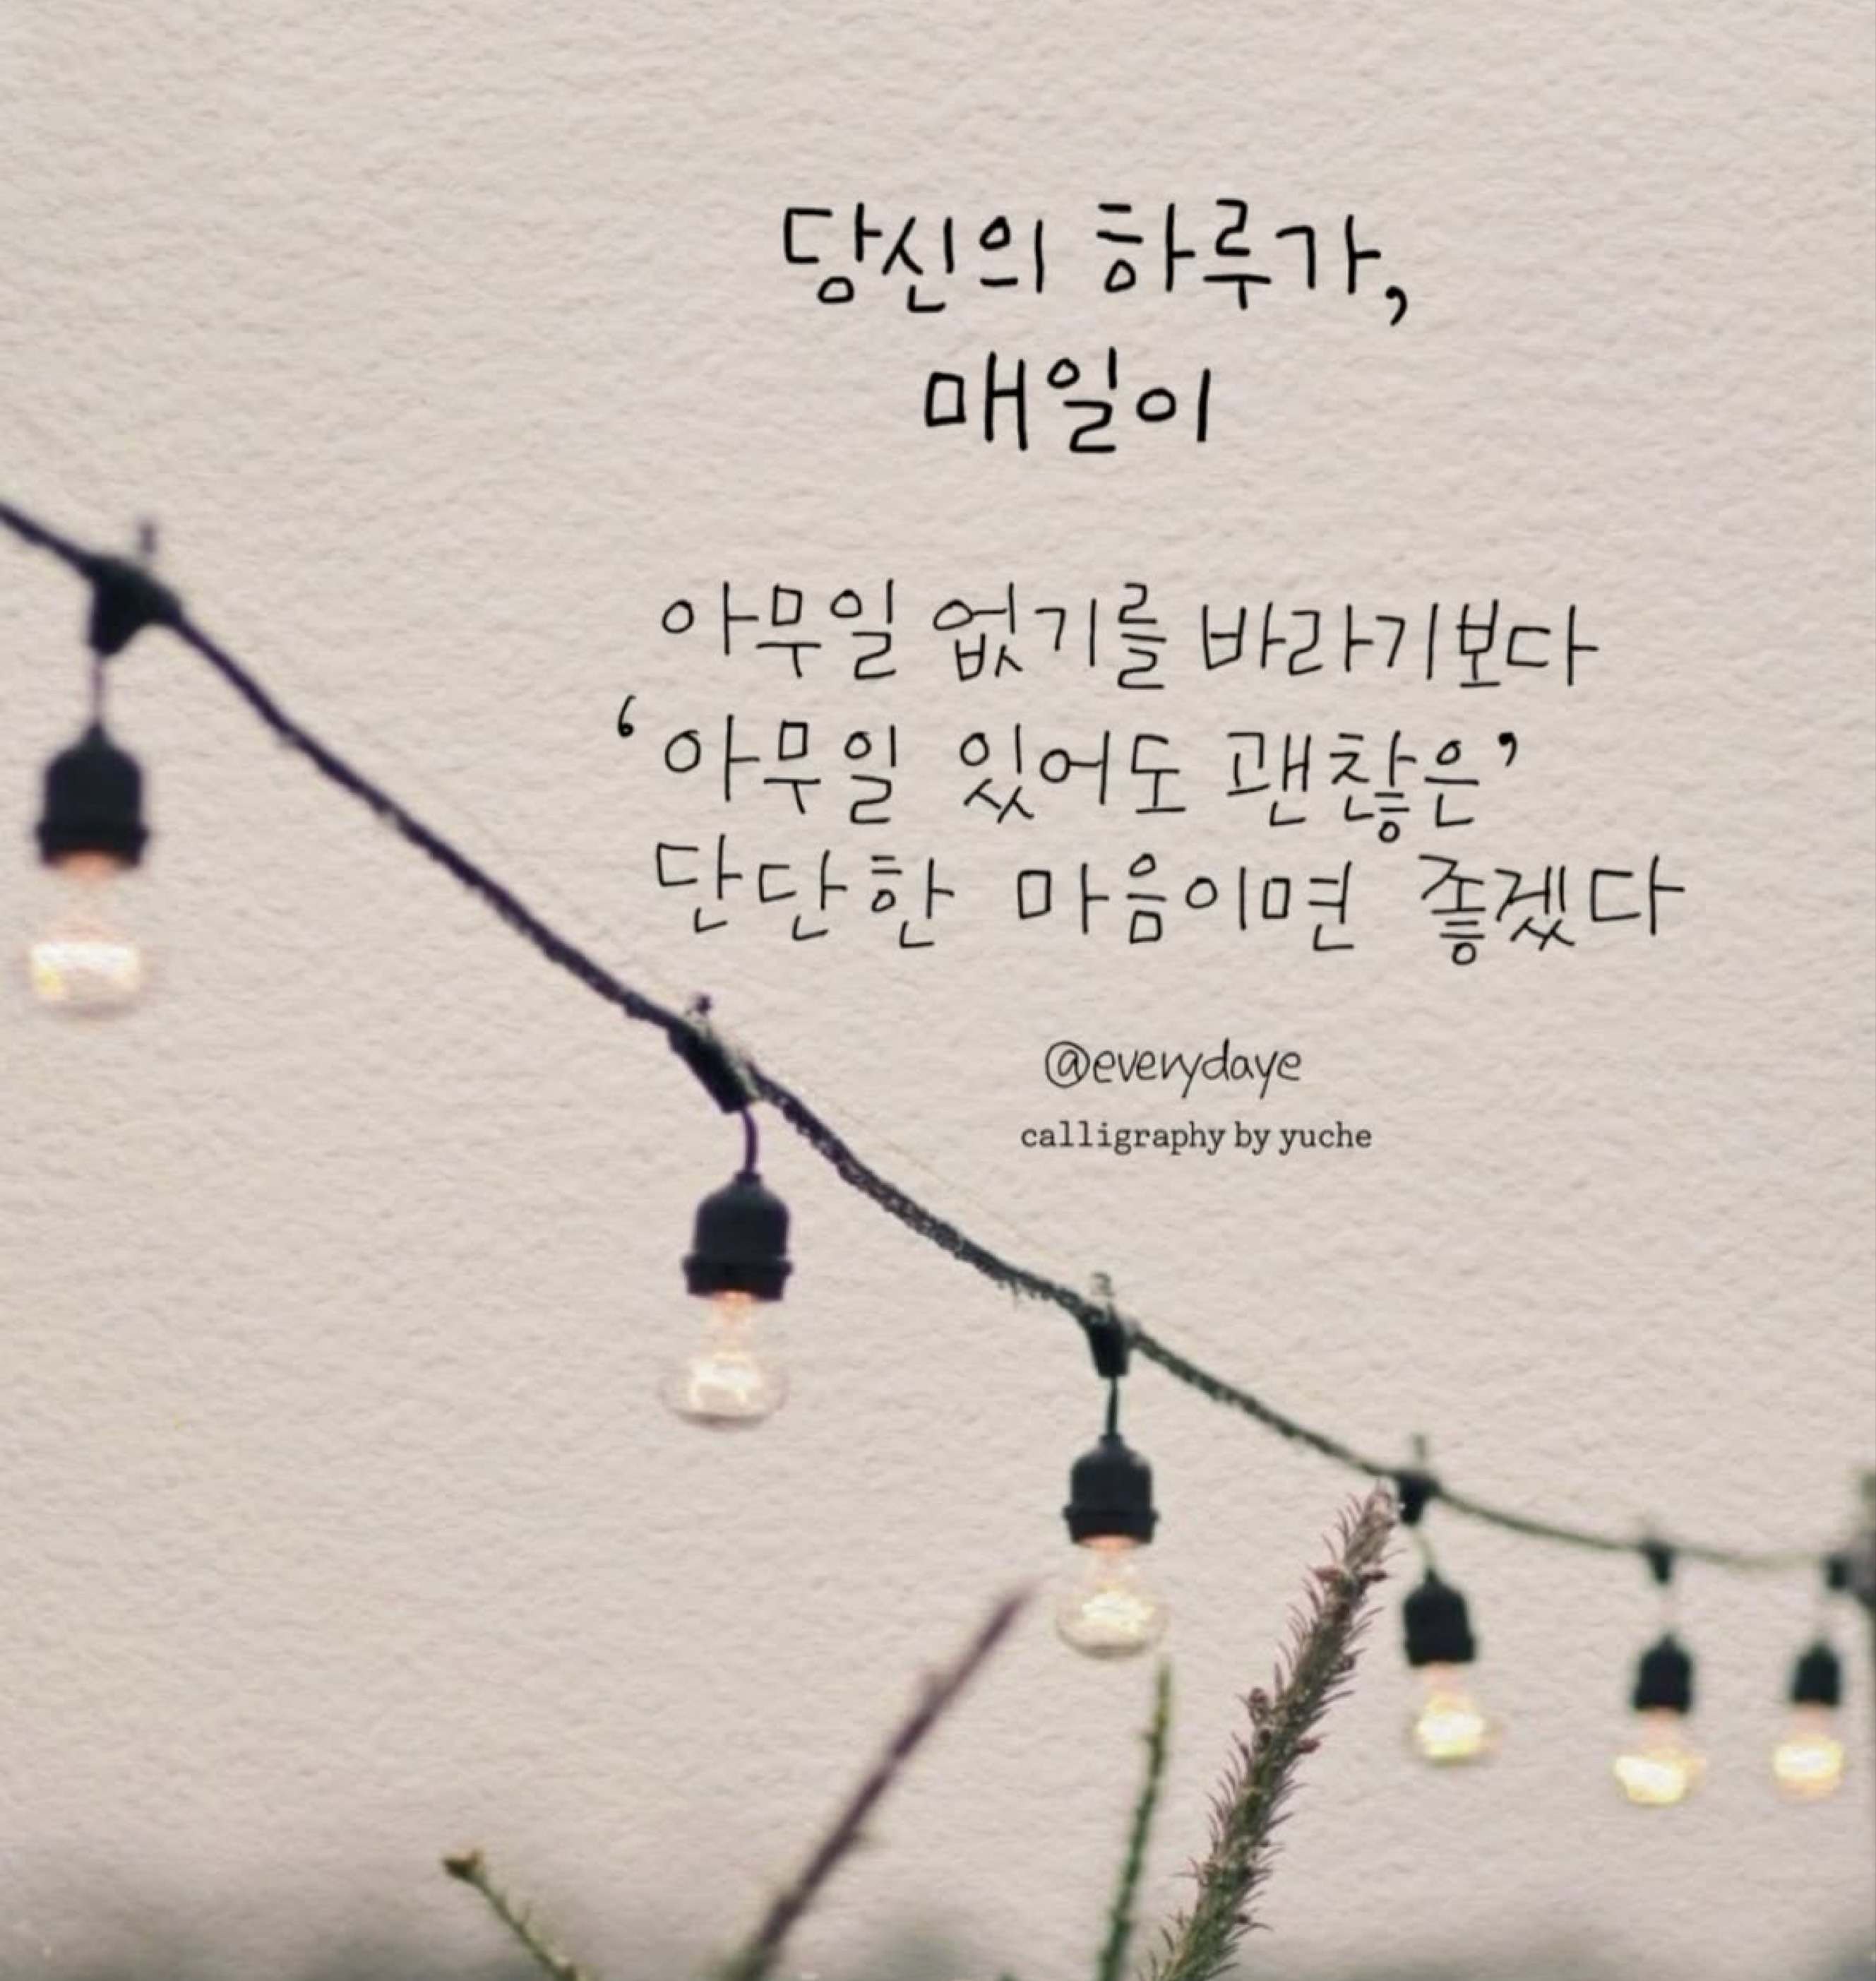 당신의 하루가,
매일이
아무일 없기를 바라기보다
‘아무일 있어도 괜찮은’
단단한 마음이면 좋겠다
@everydaye
calligraphy by yuche